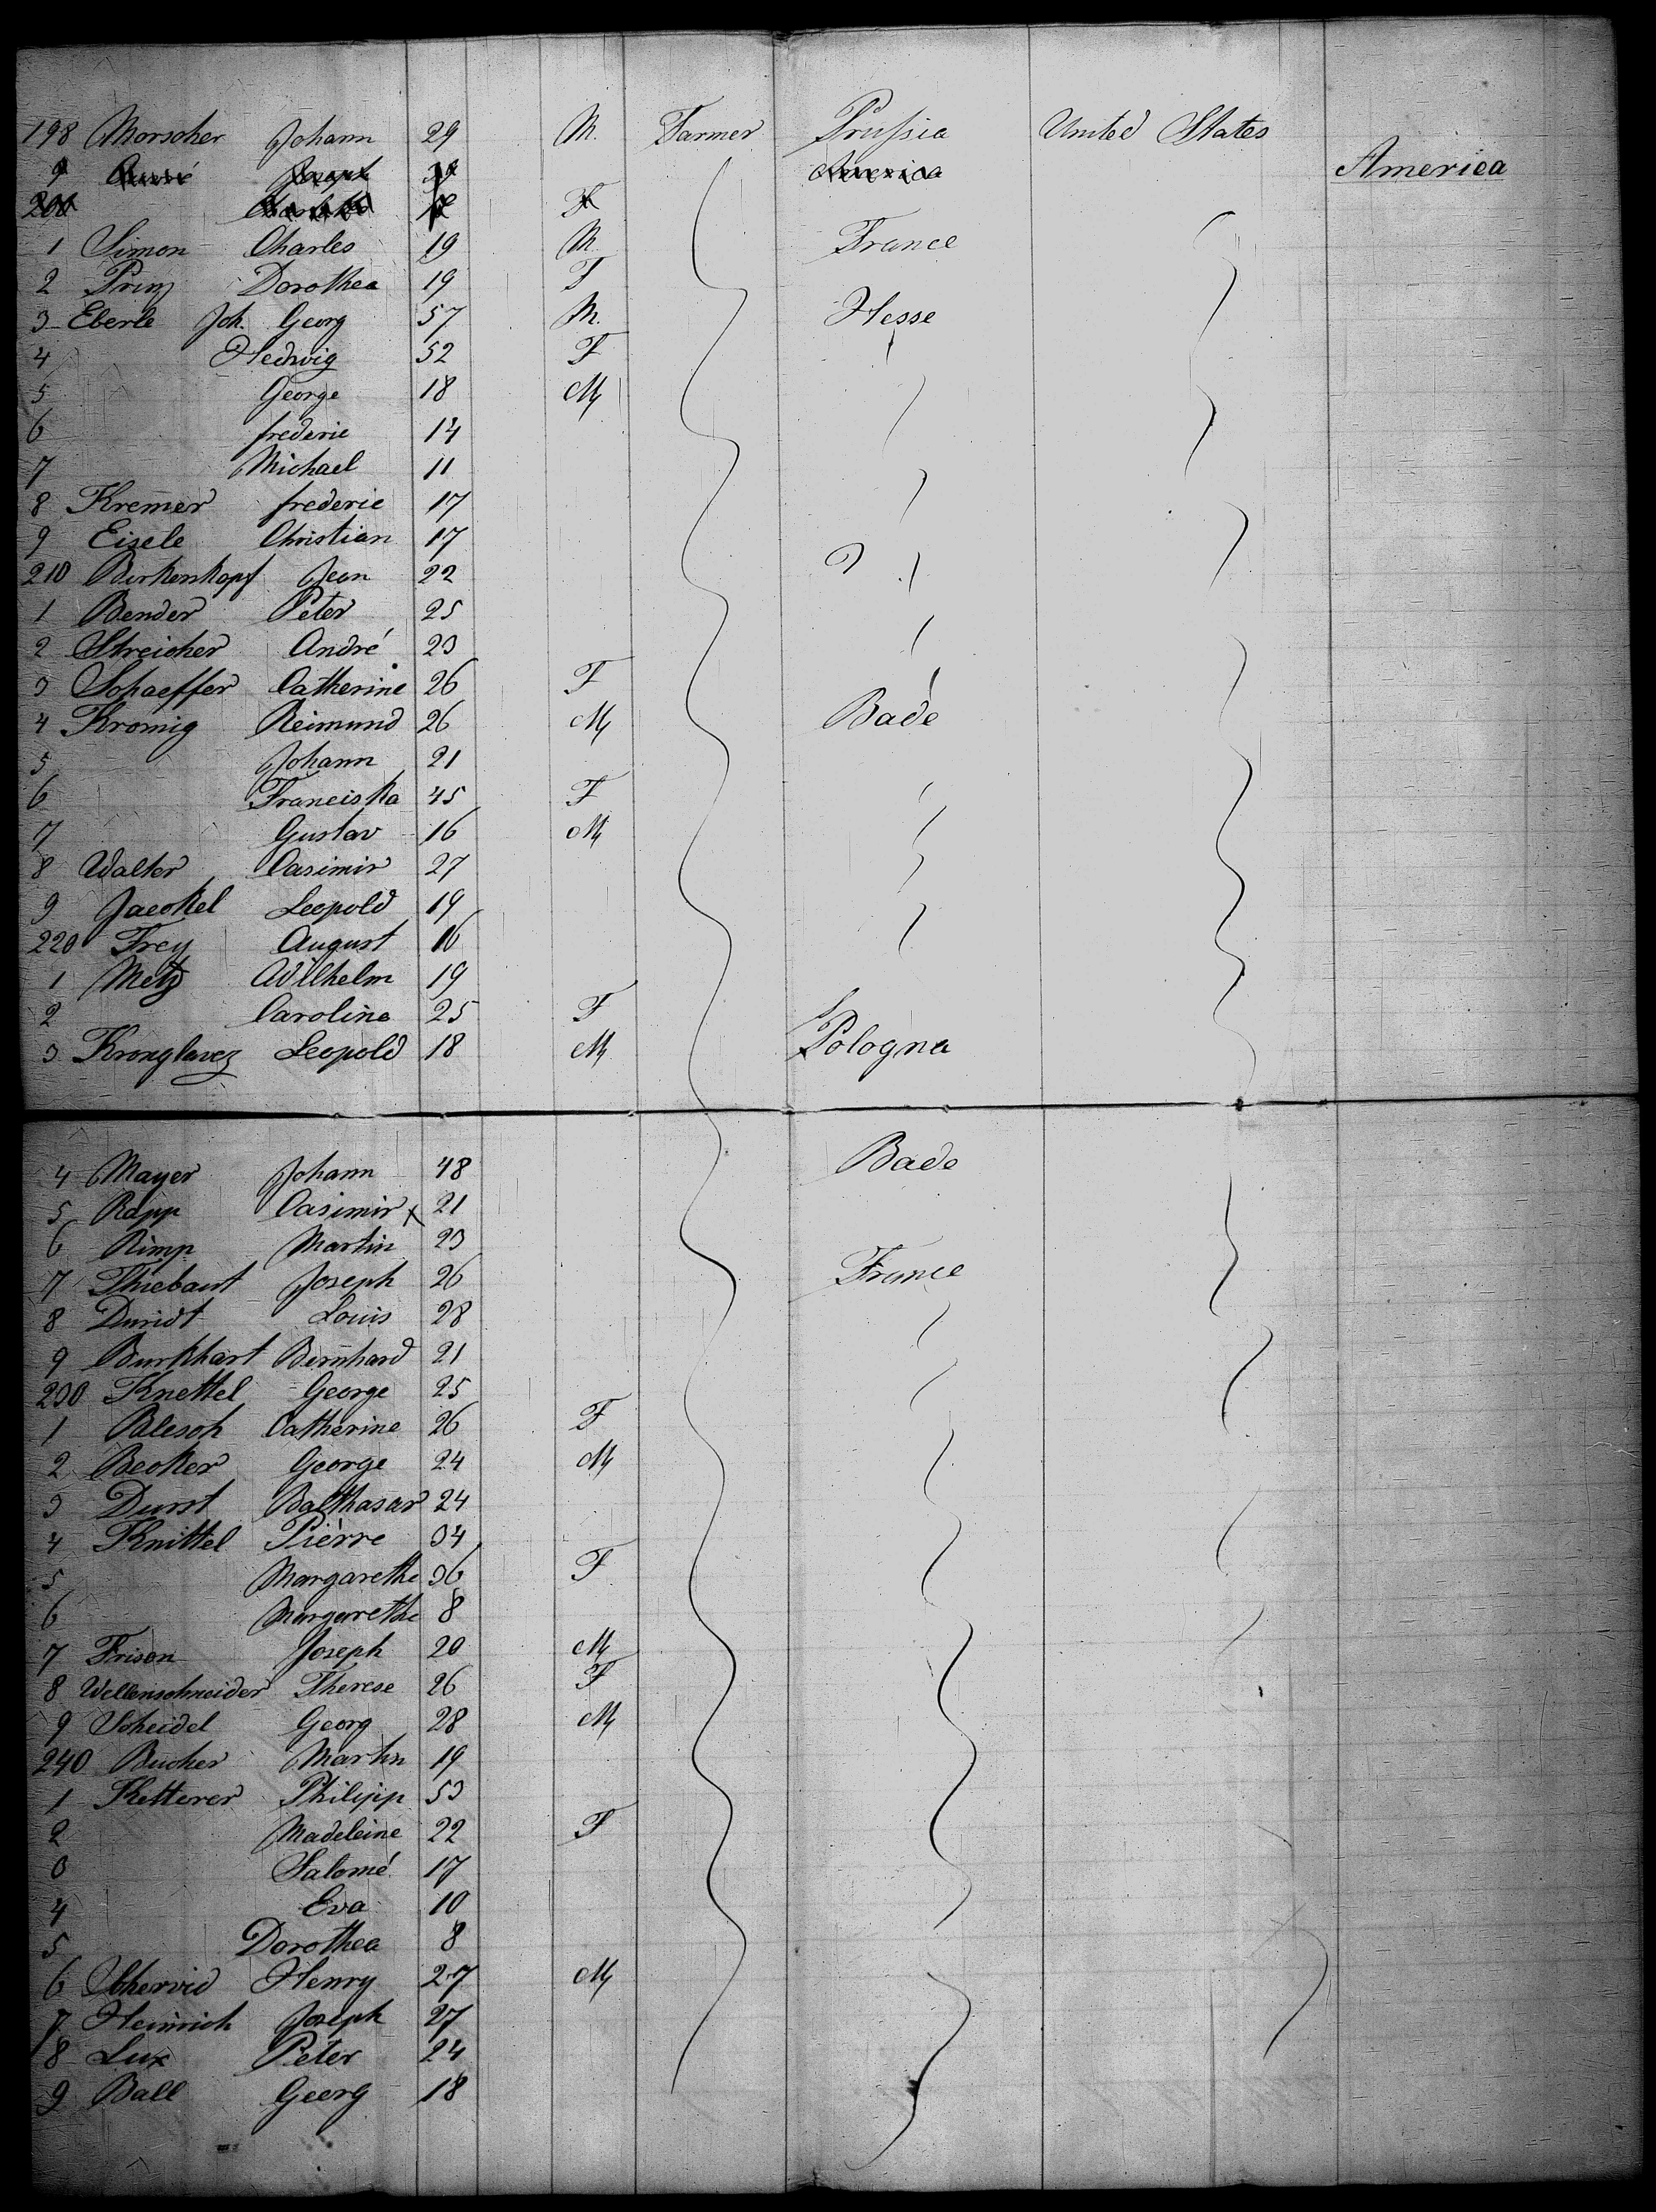 198 Morscher Johann 29 M. Farmer Prussia United States
9 Joseph America America
200 F
1 Simon Charles 19 M. France
2 Prinz Dorothea 19 F
3 Eberle Joh. Georg 57 M. Hesse
4 Hedwig 52 F
5 George 18 M
6 frederic 14
7 Michael 11
8 Kremer frederic 17
9 Eisele Christian 17
210 Birkenkopf Jean 22
1 Bender Peter 25
2 Streicher André 23
3 Schaeffer Catherine 26 F
4 Kromig Reimund 26 M Bade
5 Johann 21
6 Franciska 45 F
7 Gustav 16 M
8 Walter Casimir 27
9 Jaeckel Leopold 19
220 Frey August 16
1 Metz Wilhelm 19
2 Caroline 25 F
3 Kronglavez Leopold 18 M Pologna
4 Mayer Johann 48 Bade
5 Rapp Casimir x 21
6 Rimp Martin 23
7 Thiebaut Joseph 26 France
8 Dmidt Louis 28
9 Burkhart Bernhard 21
230 Knettel George 25
1 Blesch Catherine 26 F
2 Becker George 24 M
3 Durst Balthasar 24
4 Knittel Pierre 34
5 Margarethe 36 F
6 Margarethe 8
7 Frison Joseph 20 M
8 Wellenschneider Therese 26 F
9 Scheidel Georg 28 M
240 Bucher Martin 19
1 Ketterer Philipp 53
2 Madeleine 22 F
3 Salomé 17
4 Eva 10
5 Dorothea 8
6 Schervid Henry 27 M
7 Heinrich Joseph 27
8 Lux Peter 24
9 Ball Georg 18